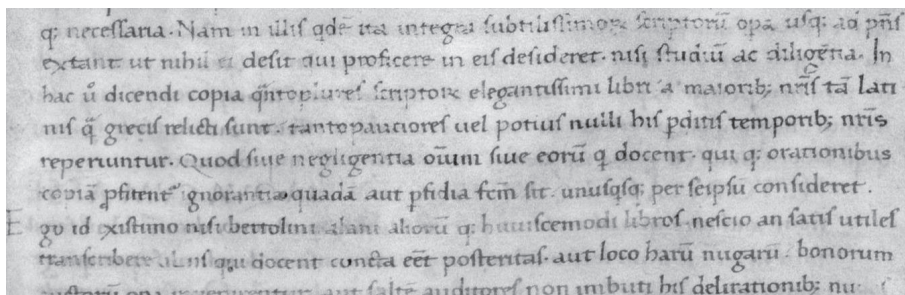 q; necessaria. Nam in illis qdē ita integra subtilissimoꝝ scriptorū opa usq; ad pn̄s
extant ut nihil ei desit qui proficere in eis desideret. nisi studiū ac diligētia. In
hac ů dicendi copia qn̄to plures scriptoꝝ elegantissimi libri a maiorib; nr̄is tā lati
nis q̄ grecis relicti sunt. tanto pauciores uel potius nulli his pditis temporib; nr̄is
reperiuntur. Quod siue negligentia oīum siue eorū q docent. qui q; orationibus
copiā pfitent ignorantia quadā aut pfidia fcm̄ sit. unusqsq; per seipsū consideret.
Ego id existimo nisi bertolini alani aliorū q; huiuscemodi libros. nescio an satis utiles
transcribere qui docent cuncta eēt posteritas. aut loco harū nugarū. bonorum
opa aut saltē auditores non imbuti his delirationib;